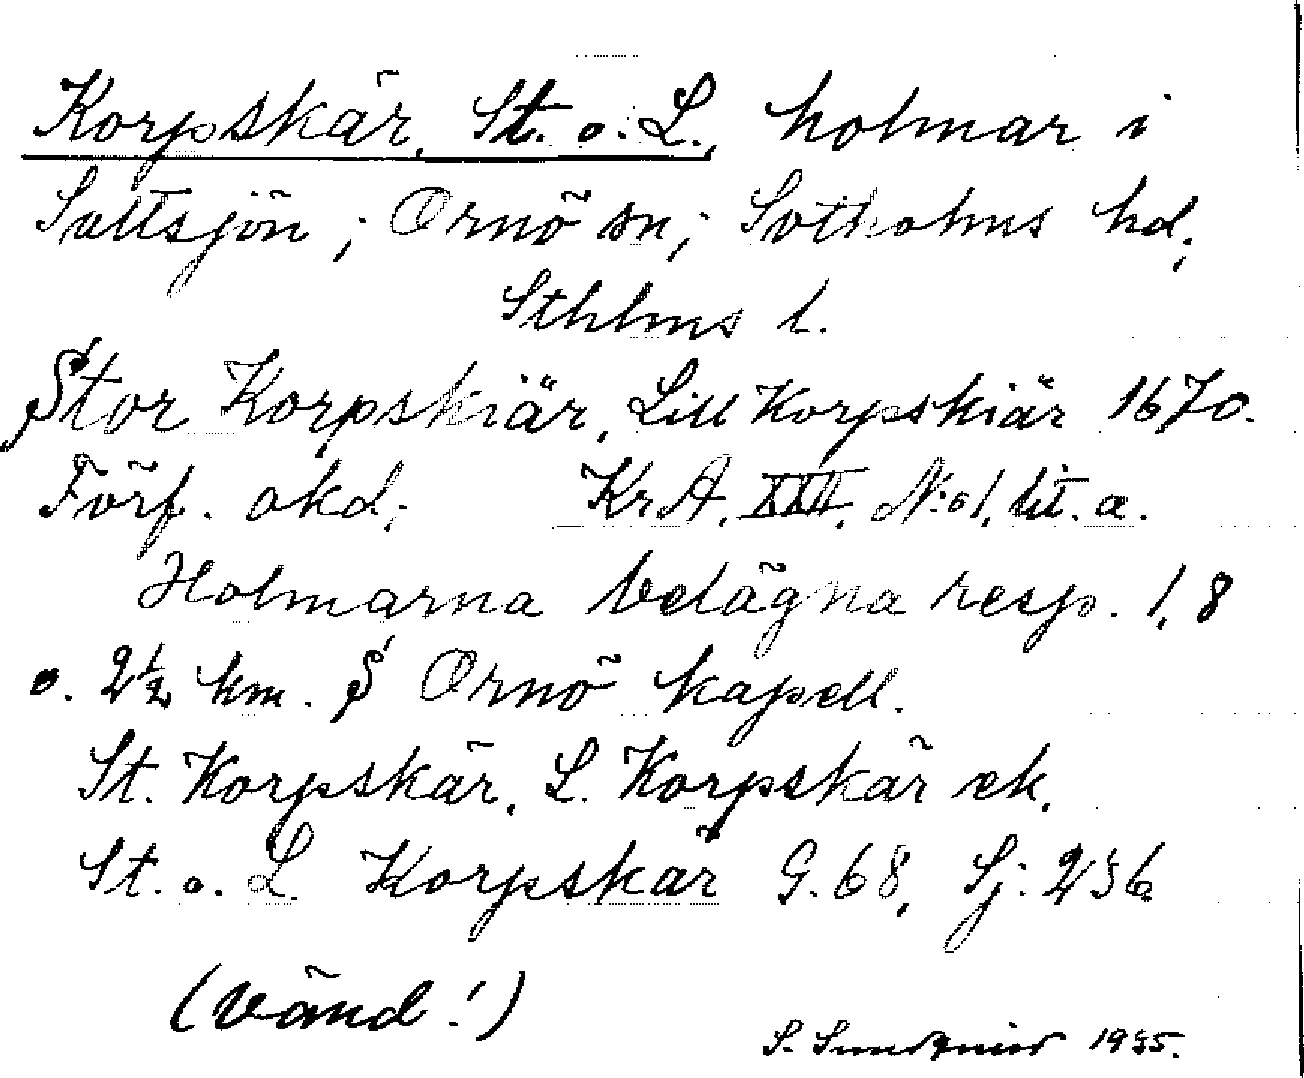 Korpskär, St. o. L., holmar i
Saltsjön; Ornö sn; Sotholms hd;
Sthlms l.
Stor Korpskiär, Lill Korpskiär 1670.
Förf. okd; Kr A. XIII. N:o 1, lit. a.
Holmarna belägna resp. 1,8
o. 2½ km. S Ornö kapell.
St. Korpskär, L. Korpskär ek.
St. o. L. Korpskär G. 68, Sj: 236
(Vänd!)
S. 1935.